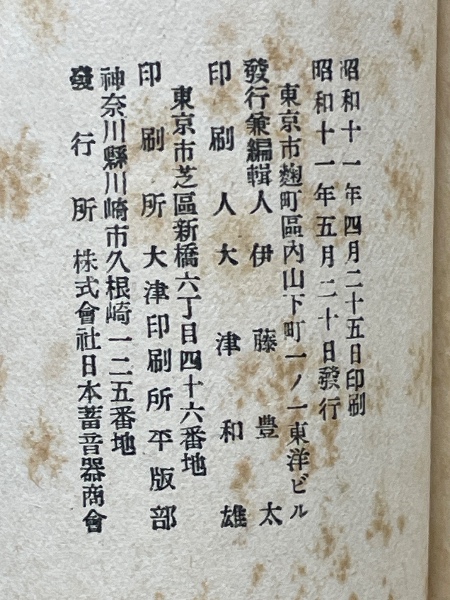 昭和十一年四月二十五日印刷
昭和十一年五月二十日發行
東京市麴町區內山下町一ノ一東洋ビル
發行兼編輯人伊藤豊太
印刷人大津和雄
東京市芝區新橋六丁目四十六番地
印刷所大津印刷所平版部
神奈川縣川崎市久根崎一二五番地
發行所株式會社日本蓄音器商會